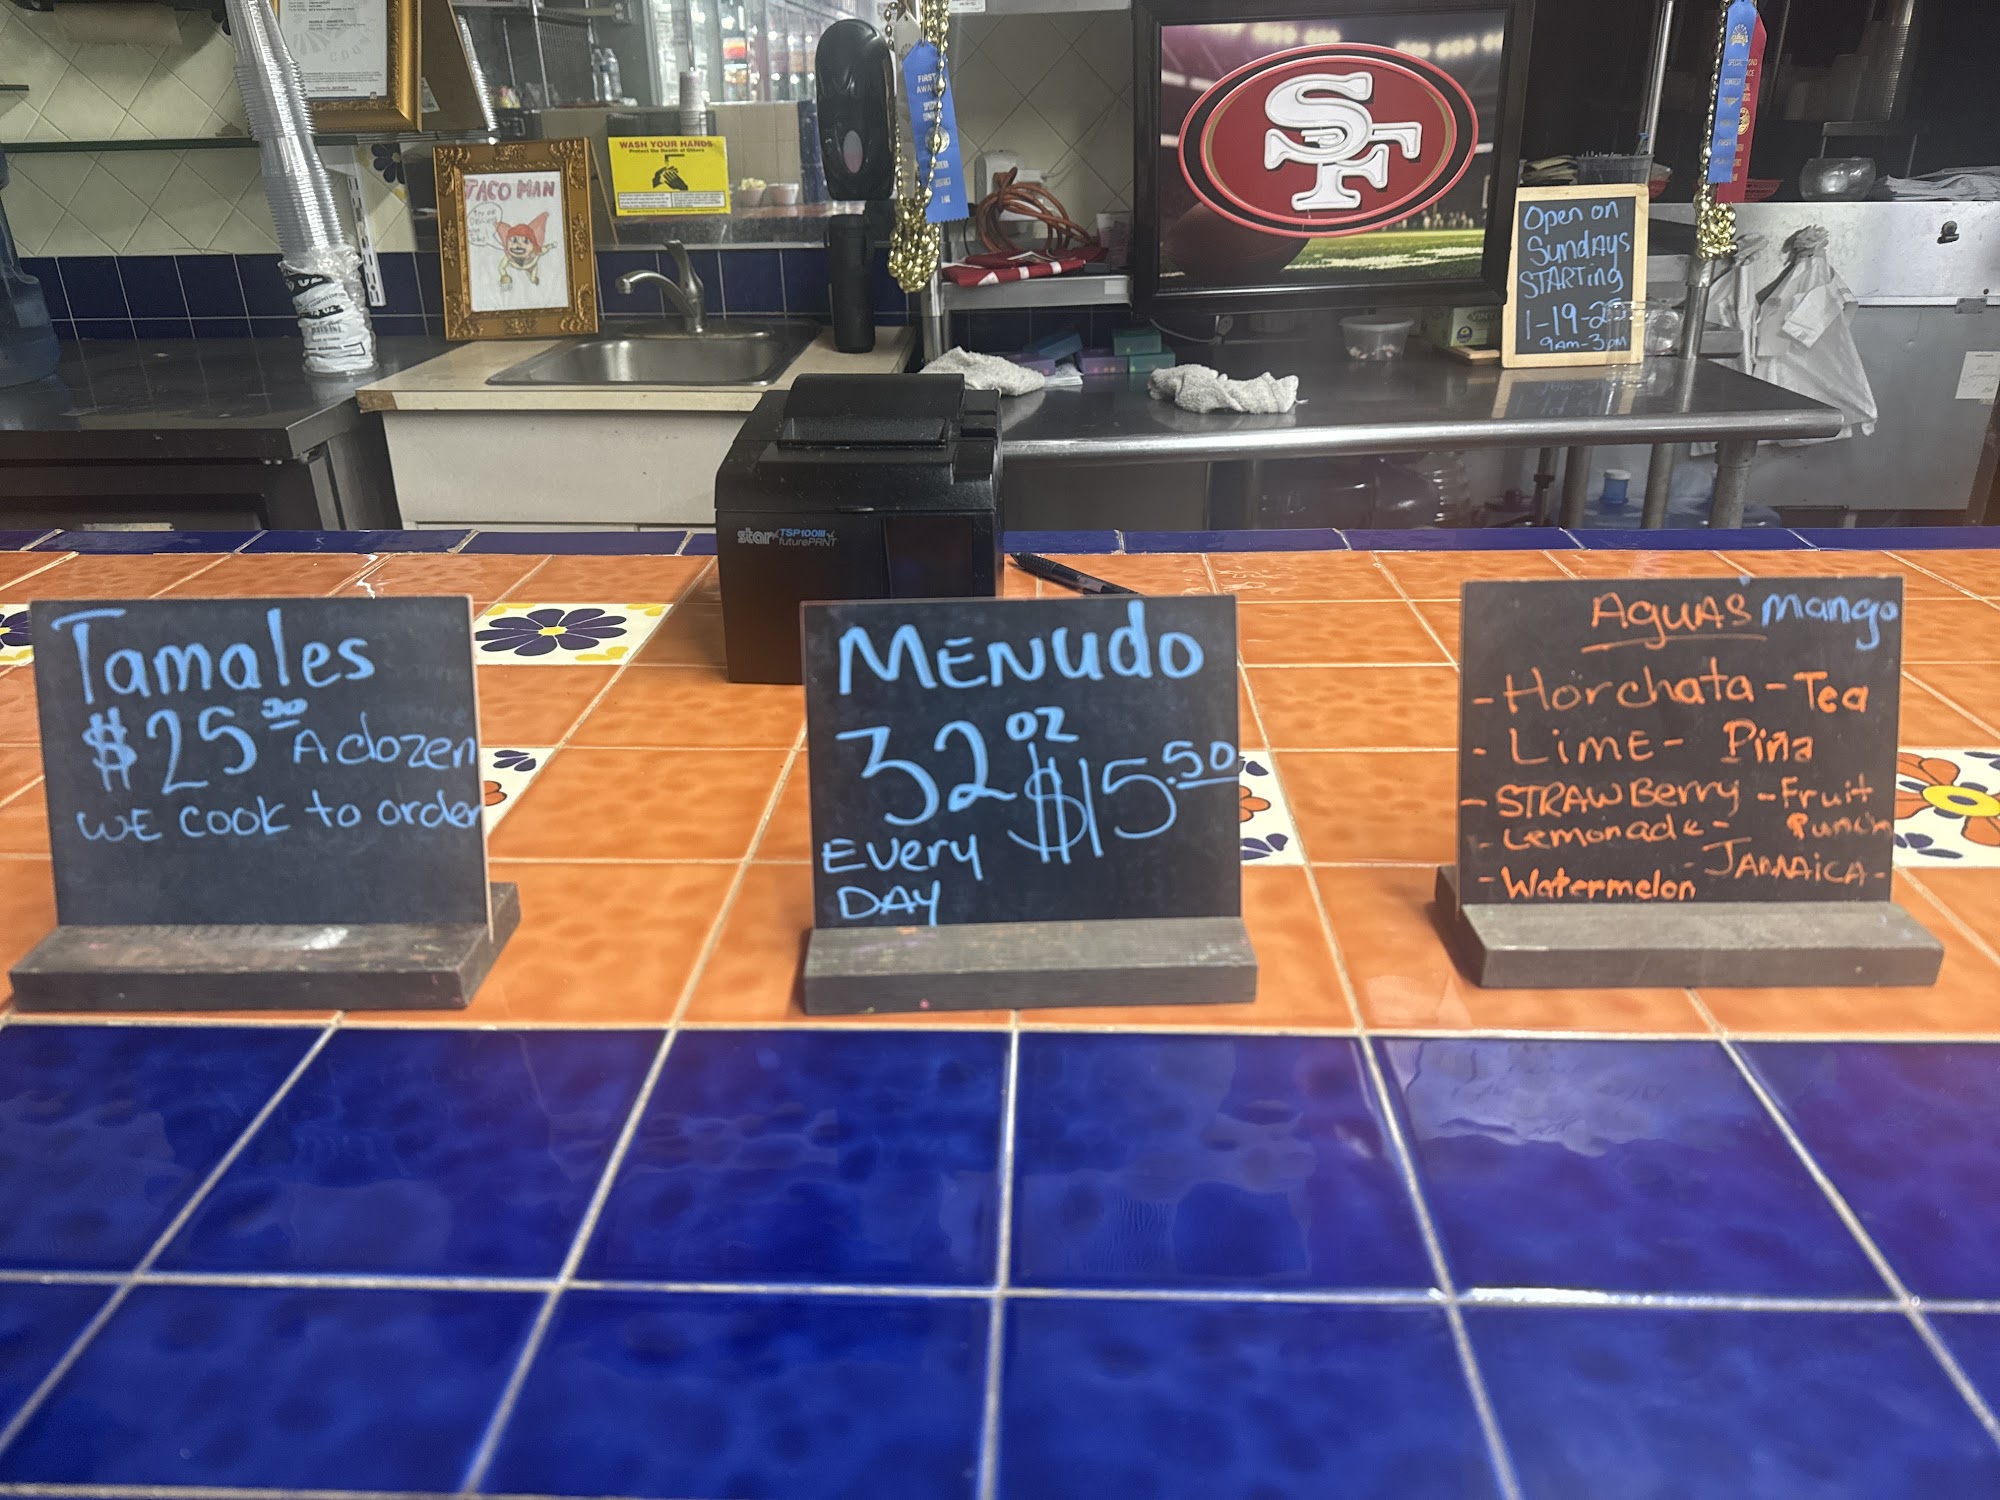 TACO MAN
WASH YOUR HANDS
Protect the Health of Others
FIRST
AWARD
SF
Open on
Sundays
STARTing
1-19-25
9AM-3pm
star TSP100III
futurePRNT
Tamales
$25.00 A dozen
WE cook to order
MENudo
32 oz
$15.50
Every
DAY
AguAS Mango
- Horchata - Tea
- LiME - Piña
- STRAWBerry - Fruit
- Lemonade - Punch
- Watermelon - JAMAICA -